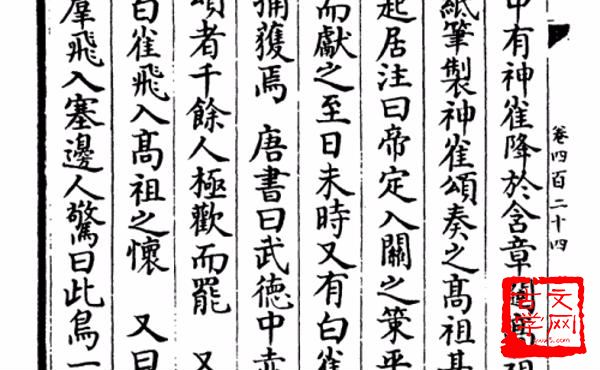 卷四百二十四
中有神雀降於含章
紙筆製神雀頌奏之髙祖甚
起居注曰帝定入關之策平
而獻之至日未時又有白雀
捕獲焉　唐書曰武德中赤
頌者千餘人極歡而罷　又
白雀飛入髙祖之懷　又曰
羣飛入塞邊人驚曰此鳥一
文学网